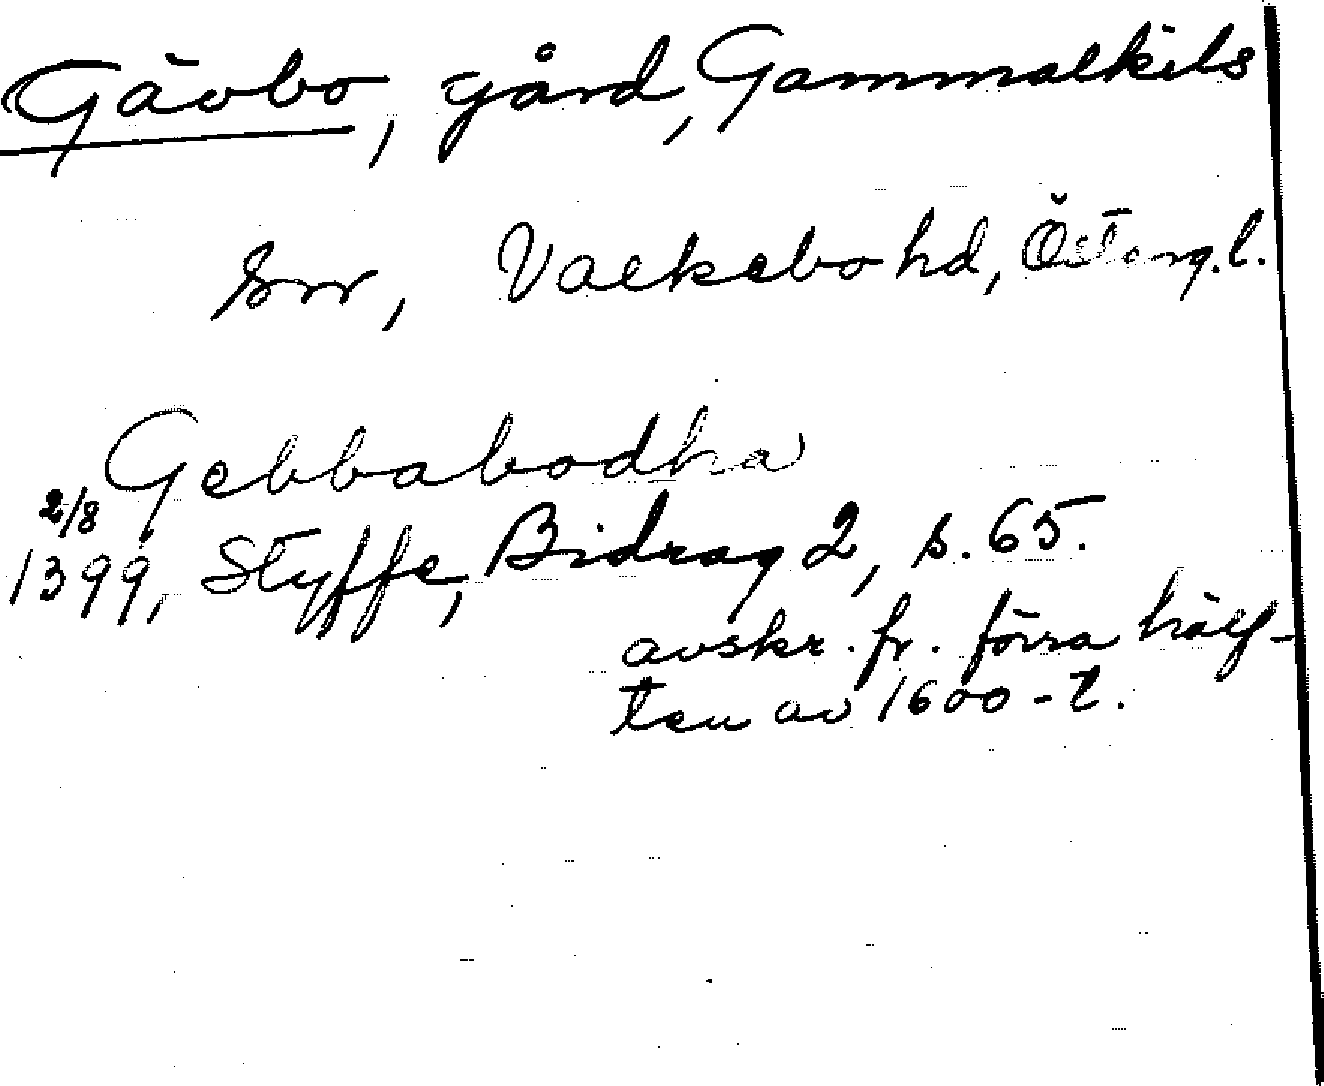 Gävbo, gård, Gammalkils
sn, Valkebo hd, Österg.l.
Gebbabodha
2/8
1399, Styffe, Bidrag 2, s. 65.
avskr. fr. förra hälf-
ten av 1600-t.